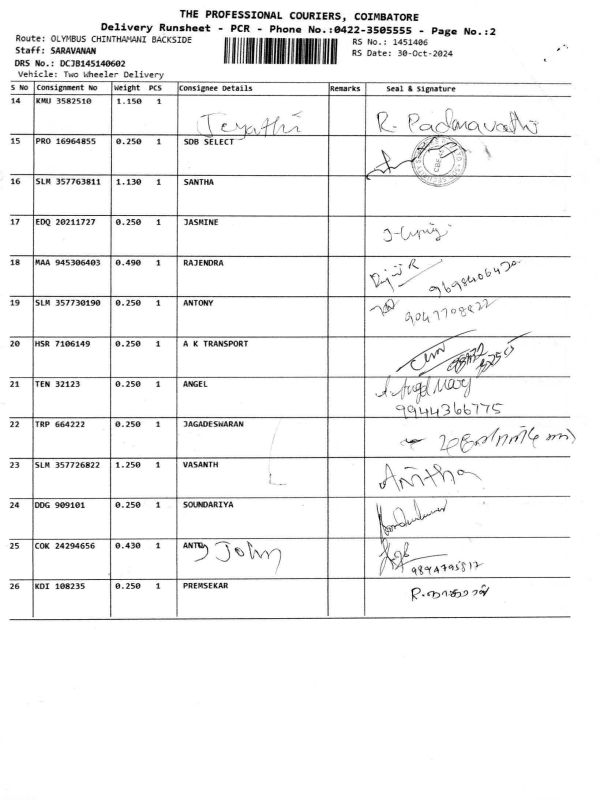 THE PROFESSIONAL COURIERS, COIMBATORE
Delivery Runsheet - PCR - Phone No.:0422-3505555 - Page No.:2
Route: OLYMBUS CHINTHAMANI BACKSIDE RS No.: 1451406
Staff: SARAVANAN RS Date: 30-Oct-2024
DRS No.: DCJB145140602
Vehicle: Two Wheeler Delivery
S No Consignment No Weight PCS Consignee Details Remarks Seal & Signature
14 KMU 3582510 1.150 1 Jeyathi R. Padmavathi
15 PRO 16964855 0.250 1 SDB SELECT
16 SLM 357763811 1.130 1 SANTHA
17 EDQ 20211727 0.250 1 JASMINE
18 MAA 945306403 0.490 1 RAJENDRA
19 SLM 357730190 0.250 1 ANTONY
20 HSR 7106149 0.250 1 A K TRANSPORT
21 TEN 32123 0.250 1 ANGEL A. Angel Mary
9944366775
22 TRP 664222 0.250 1 JAGADESWARAN
23 SLM 357726822 1.250 1 VASANTH Anitha
24 DDG 909101 0.250 1 SOUNDARIYA
25 COK 24294656 0.430 1 ANTO John
9894795817
26 KDI 108235 0.250 1 PREMSEKAR